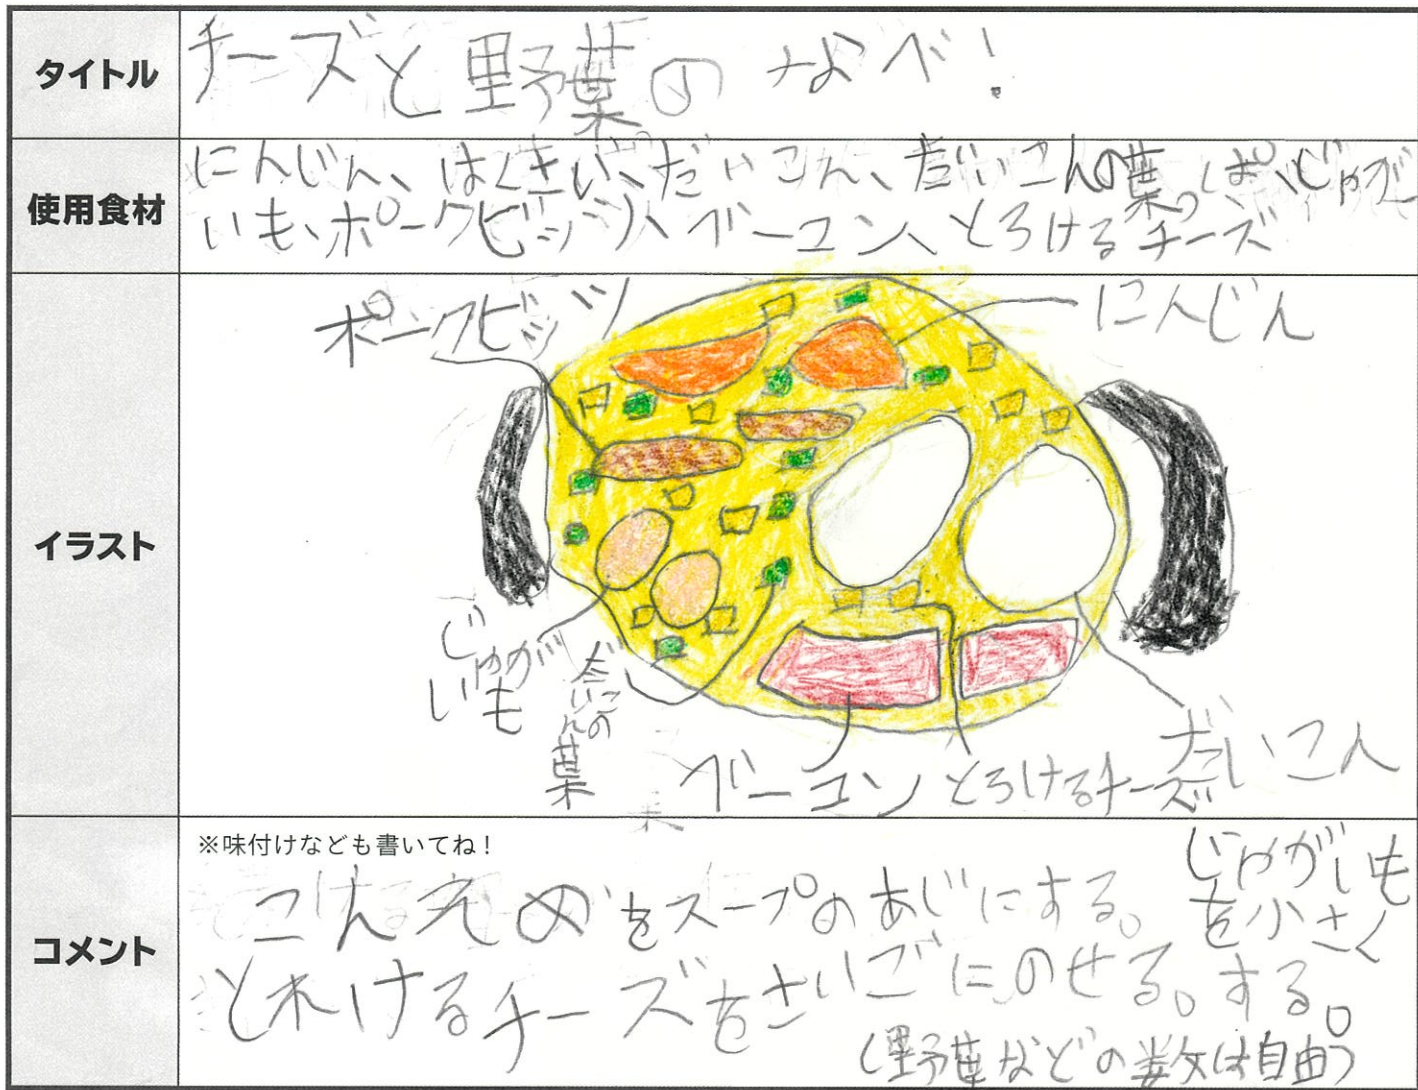 タイトル
チーズと野葉のなべ!
使用食材
にんじん、はくさい、だいこん、だいこんの葉っぱ、じゃが
いも、ポークビッツ、ベーコン、とろけるチーズ
イラスト
ポークビッツ
にんじん
じゃが
いも
だいこんの
葉
ベーコン
とろけるチーズ
だいこん
コメント
※味付けなども書いてね!
をスープのあじにする。
とろけるチーズをさいごにのせる。
じゃがいも
を小さく
する。
(野葉などの数は自由)